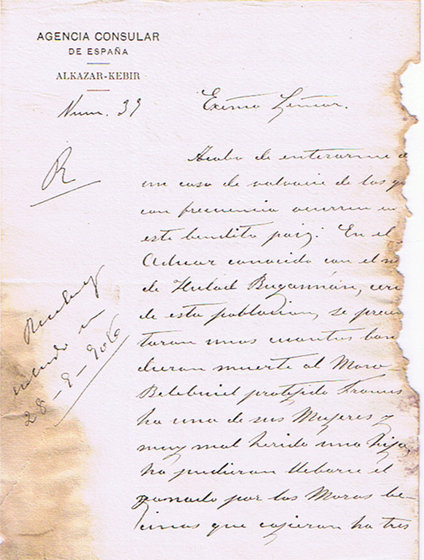 AGENCIA CONSULAR
DE ESPAÑA
ALKAZAR-KEBIR
Num. 39
Excmo Señor.
R
Acabo de enterarme d
un caso de salvajie de los q
con frecuencia ocurren en
este bendito paiz: En el
Aduar conocido con el n
de Hulad Bugammán, cerc
de esta poblacion, se presen
taron unos cuantos ban
dieron muerte al Moro
protejido Frances
ha una de sus Mujeres y
muy mal herido una hija,
no pudieron llebarse el
ganado por los Moros be
cinos que cojieron ha tres
en
28-8-906